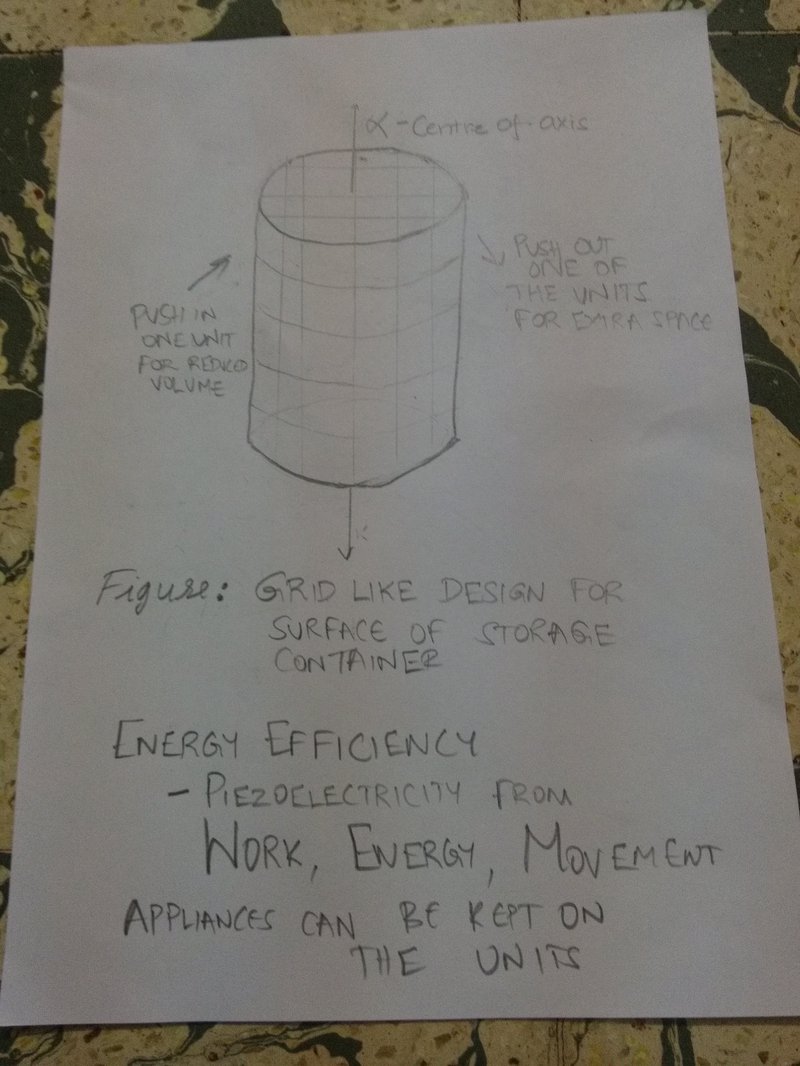 α - Centre of axis
PUSH OUT
ONE OF
THE UNITS
FOR EXTRA SPACE
PUSH IN
ONE UNIT
FOR REDUCED
VOLUME
Figure: GRID LIKE DESIGN FOR
SURFACE OF STORAGE
CONTAINER
ENERGY EFFICIENCY
- PIEZOELECTRICITY FROM
WORK, ENERGY, MOVEMENT
APPLIANCES CAN BE KEPT ON
THE UNITS